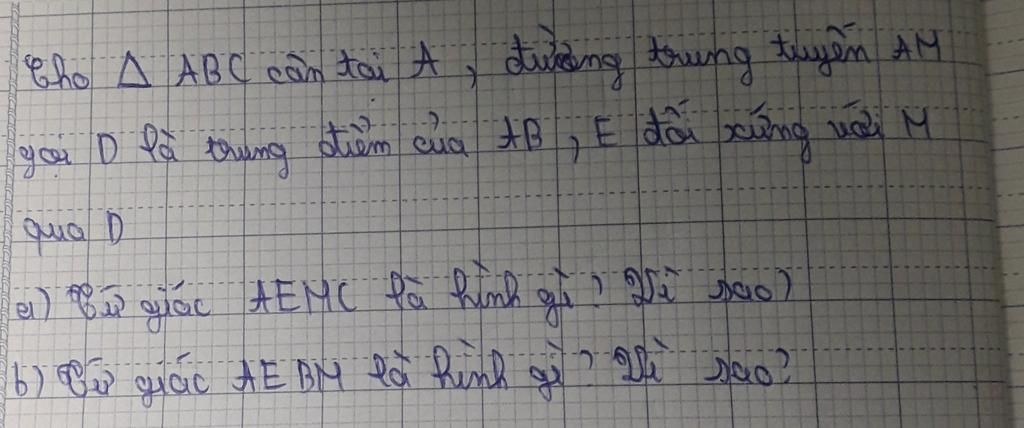 Cho Δ ABC cân tại A, đường trung tuyến AM
gọi D là trung điểm của AB, E đối xứng với M
qua D
a) Tứ giác AEMC là hình gì? Vì sao?
b) Tứ giác AEBM là hình gì? Vì sao?